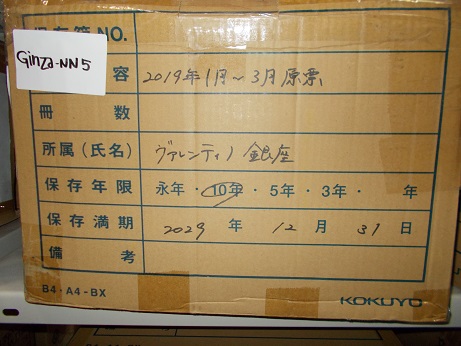 保存箱 NO.
Ginza-NN5
容 2019年1月~3月原票
冊 数
所属(氏名) ヴァレンティノ 銀座
保存年限 永年・10年・5年・3年・ 年
保存満期 2029 年 12 月 31 日
備 考
B4・A4-BX KOKUYO